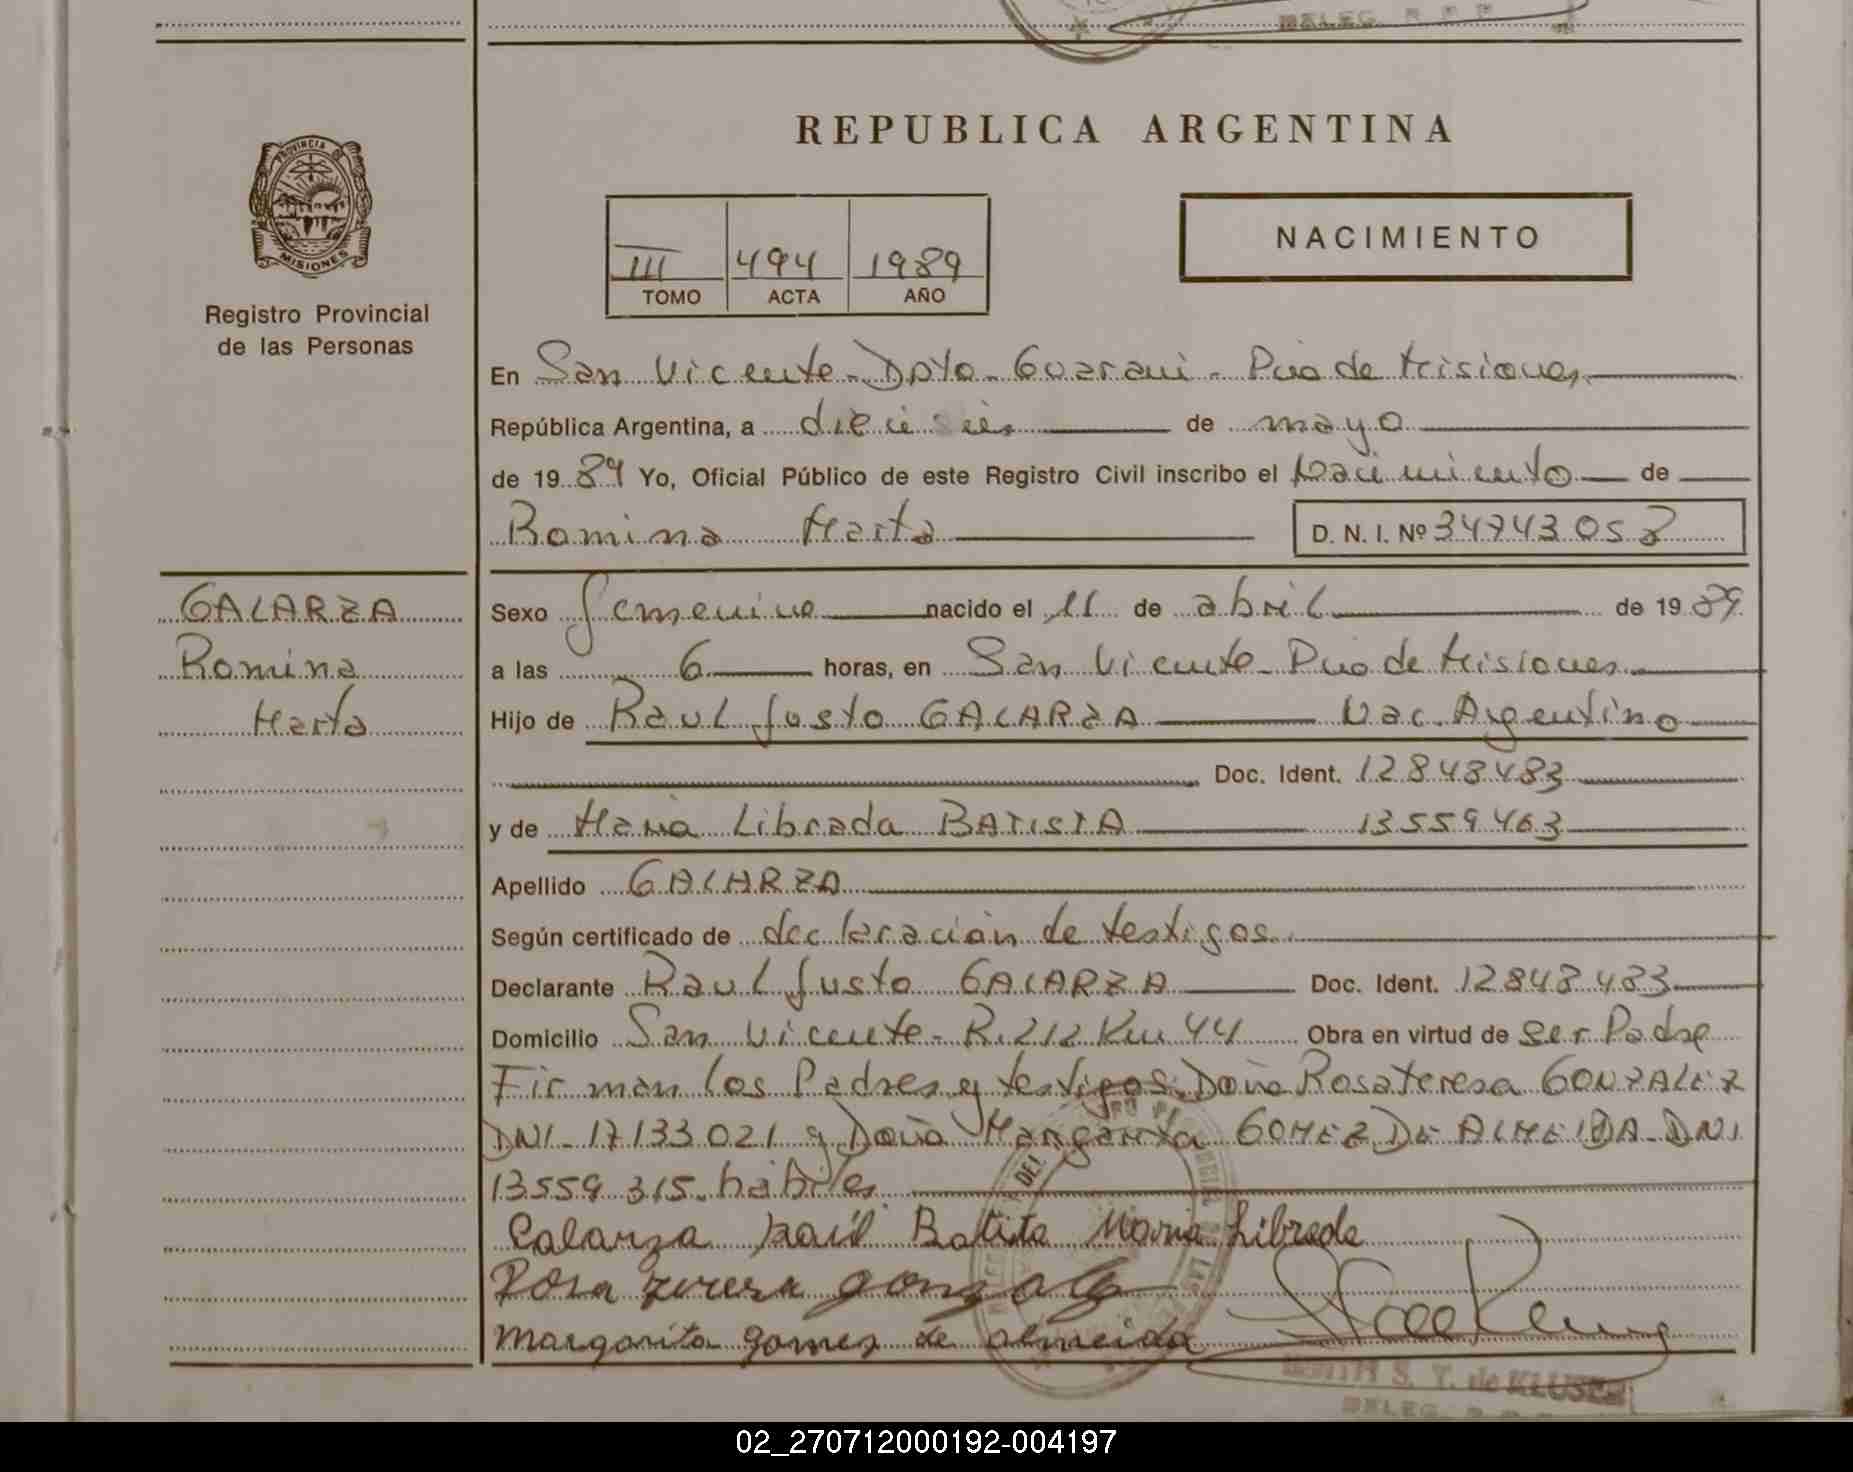 REPUBLICA ARGENTINA
PROVINCIA DE
MISIONES
Registro Provincial
de las Personas
III 494 1989
TOMO ACTA AÑO
NACIMIENTO
En San Vicente - Dpto - Guarani - Pcia de Misiones
República Argentina, a dieciseis de mayo
de 19 89 Yo, Oficial Público de este Registro Civil inscribo el Nacimiento de
Romina Marta D. N. I. Nº 34743053
GALARZA
Romina
Marta
Sexo femenino nacido el 11 de abril de 19 89
a las 6 horas, en San Vicente - Pcia de Misiones
Hijo de Raul Justo GALARZA Nac. Argentino
Doc. Ident. 12848483
y de Maria Librada BATISTA 13559463
Apellido GALARZA
Según certificado de declaración de testigos
Declarante Raul Justo GALARZA Doc. Ident. 12848483
Domicilio San Vicente - R. 212 Km 44 Obra en virtud de ser Padre
Firman los Padres y testigos Doña Rosa Teresa GONZALEZ
DNI - 17133021 y Doña Margarita GOMEZ DE ALMEIDA - DNI
13559315. habiles
Galarza Raúl Batita Maria Librada
Rosa Teresa Gonzalez
Margarita gomez de almeida
S. T. de KLUSER
DELEG.
02_270712000192-004197